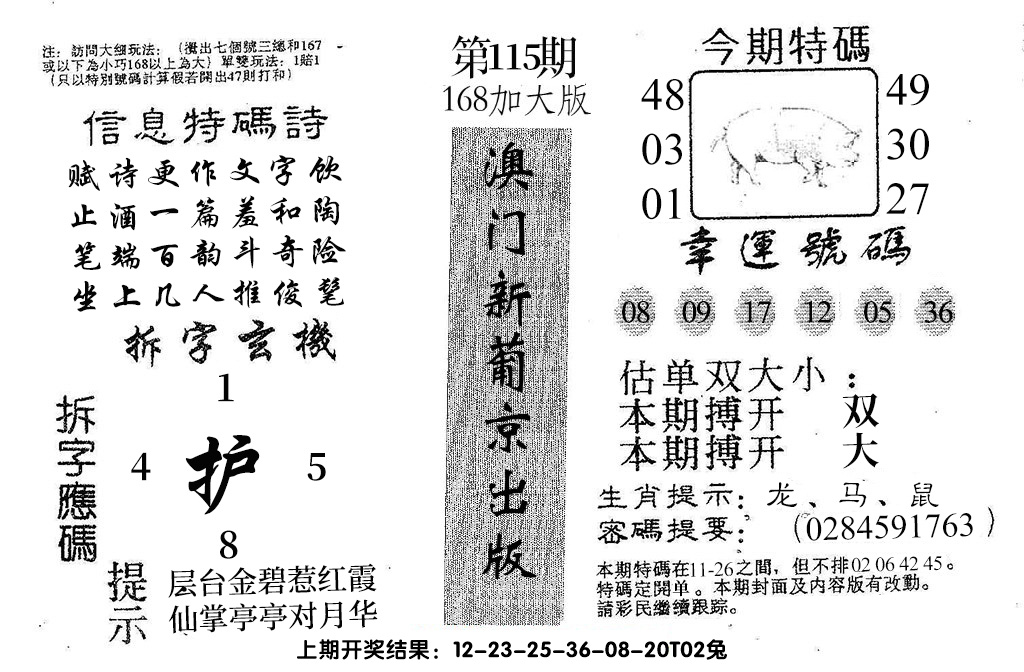 注：訪問大细玩法：（攪出七個號三總和167
或以下為小巧168以上為大）單雙玩法：1賠1
（只以特別號碼計算假若開出47則打和）
信息特碼詩
赋诗更作文字饮
止酒一篇羞和陶
笔端百韵斗奇险
坐上几人推俊髦
拆字玄機
拆字應碼
1
4 护 5
8
提示
层台金碧惹红霞
仙掌亭亭对月华
第115期
168加大版
澳门新葡京出版
今期特碼
48 49
03 30
01 27
幸運號碼
08 09 17 12 05 36
估单双大小：
本期搏开 双
本期搏开 大
生肖提示：龙、马、鼠
密碼提要：（0284591763）
本期特碼在11-26之間，但不排02 06 42 45。
特碼定開单。本期封面及内容版有改動。
請彩民繼續跟踪。
上期开奖结果：12-23-25-36-08-20T02兔